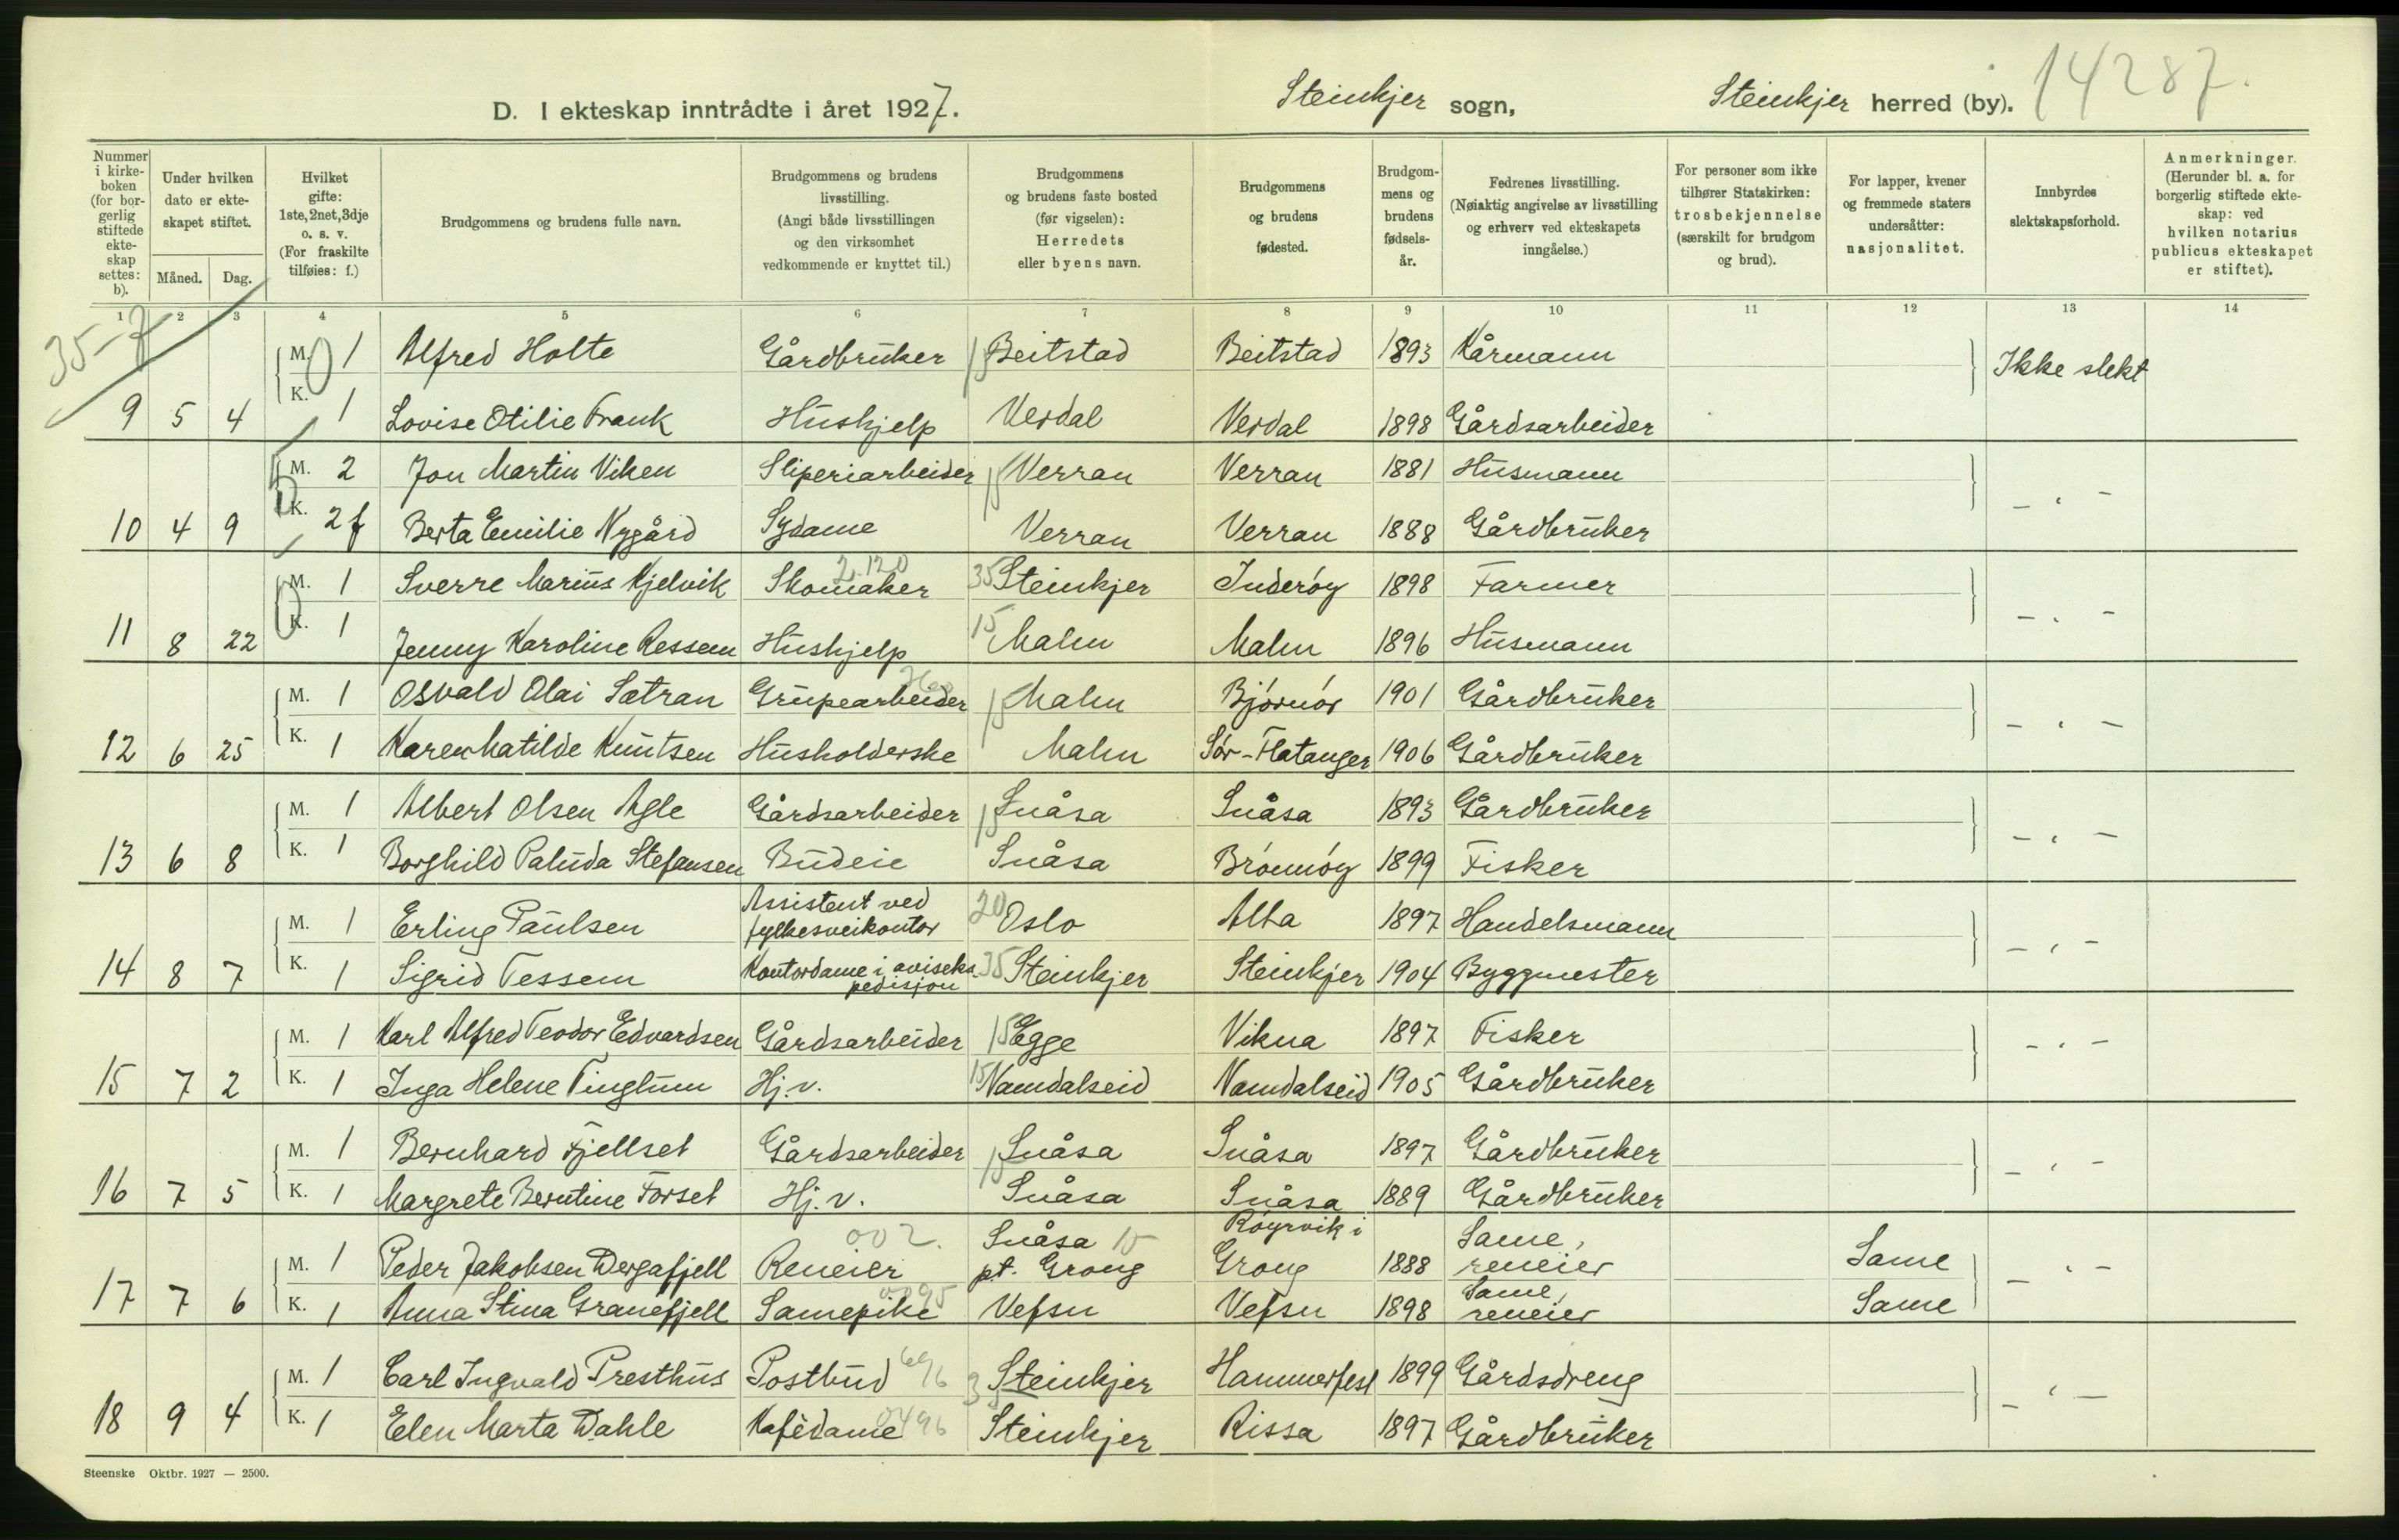 D. I ekteskap inntrådte i året 1927. Steinkjer sogn, Steinkjer herred (by). 14287.
Nummer i kirkeboken (for borgerlig stiftede ekteskap settes: b).
Under hvilken dato er ekteskapet stiftet.
Måned. Dag.
Hvilket gifte: 1ste, 2net, 3dje o. s. v. (For fraskilte tilføies: f.)
Brudgommens og brudens fulle navn.
Brudgommens og brudens livsstilling. (Angi både livsstillingen og den virksomhet vedkommende er knyttet til.)
Brudgommens og brudens faste bosted (før vigselen): Herredets eller byens navn.
Brudgommens og brudens fødested.
Brudgommens og brudens fødselsår.
Fedrenes livsstilling. (Nøiaktig angivelse av livsstilling og erhverv ved ekteskapets inngåelse.)
For personer som ikke tilhører Statskirken: trosbekjennelse (særskilt for brudgom og brud).
For lapper, kvener og fremmede staters undersåtter: nasjonalitet.
Innbyrdes slektskapsforhold.
Anmerkninger. (Herunder bl. a. for borgerlig stiftede ekteskap: ved hvilken notarius publicus ekteskapet er stiftet).
1 2 3 4 5 6 7 8 9 10 11 12 13 14
35-7
M. 1 Alfred Holte Gårdbruker 15 Beitstad Beitstad 1893 Kårmann Ikke slekt
9 5 4 K. 1 Lovise Otilie Frank Hushjelp Verdal Verdal 1898 Gårdsarbeider
M. 2 Jon Martin Viken Sliperiarbeider 15 Verran Verran 1881 Husmann
10 4 9 K. 2f Berta Emilie Nygård Sydame Verran Verran 1888 Gårdbruker - " -
M. 1 Sverre Marius Kjelvik Skomaker 2.120 35 Steinkjer Inderøy 1898 Farmer
11 8 22 K. 1 Jenny Karoline Ressem Hushjelp 15 Malm Malm 1896 Husmann - " -
M. 1 Osvald Olai Sætran Grupearbeider 15 Malm Bjørnør 1901 Gårdbruker
12 6 25 K. 1 Karen Matilde Knutsen Husholderske Malm Sør-Flatanger 1906 Gårdbruker - " -
M. 1 Albert Olsen Agle Gårdsarbeider 15 Snåsa Snåsa 1893 Gårdbruker
13 6 8 K. 1 Borghild Paluda Stefansen Budeie Snåsa Brønnøy 1899 Fisker - " -
M. 1 Erling Paulsen Assistent ved fylkesveikontor 20 Oslo Alta 1897 Handelsmann
14 8 7 K. 1 Sigrid Tessem Kontordame i avisekspedisjon 35 Steinkjer Steinkjer 1904 Byggmester - " -
M. 1 Karl Alfred Teodor Edvardsen Gårdsarbeider 15 Egge Vikna 1897 Fisker
15 7 2 K. 1 Inga Helene Tinglum Hj.v. 15 Namdalseid Namdalseid 1905 Gårdbruker - " -
M. 1 Bernhard Fjellset Gårdsarbeider 15 Snåsa Snåsa 1897 Gårdbruker
16 7 5 K. 1 Margrete Berntine Forset Hj.v. Snåsa Snåsa 1889 Gårdbruker - " -
M. 1 Peder Jakobsen Dergafjell Reneier 002. Snåsa 15 pt. Grong Røyrvik i Grong 1888 Same, reneier Same
17 7 6 K. 1 Anna Stina Granefjell Samepike 0095 Vefsn Vefsn 1898 Same, reneier Same - " -
M. 1 Carl Ingvald Presthus Postbud 696 35 Steinkjer Hammerfest 1899 Gårdsdreng
18 9 4 K. 1 Elen Marta Dahle Kafédame 0496 Steinkjer Rissa 1897 Gårdbruker - " -
Steenske Oktbr. 1927 — 2500.